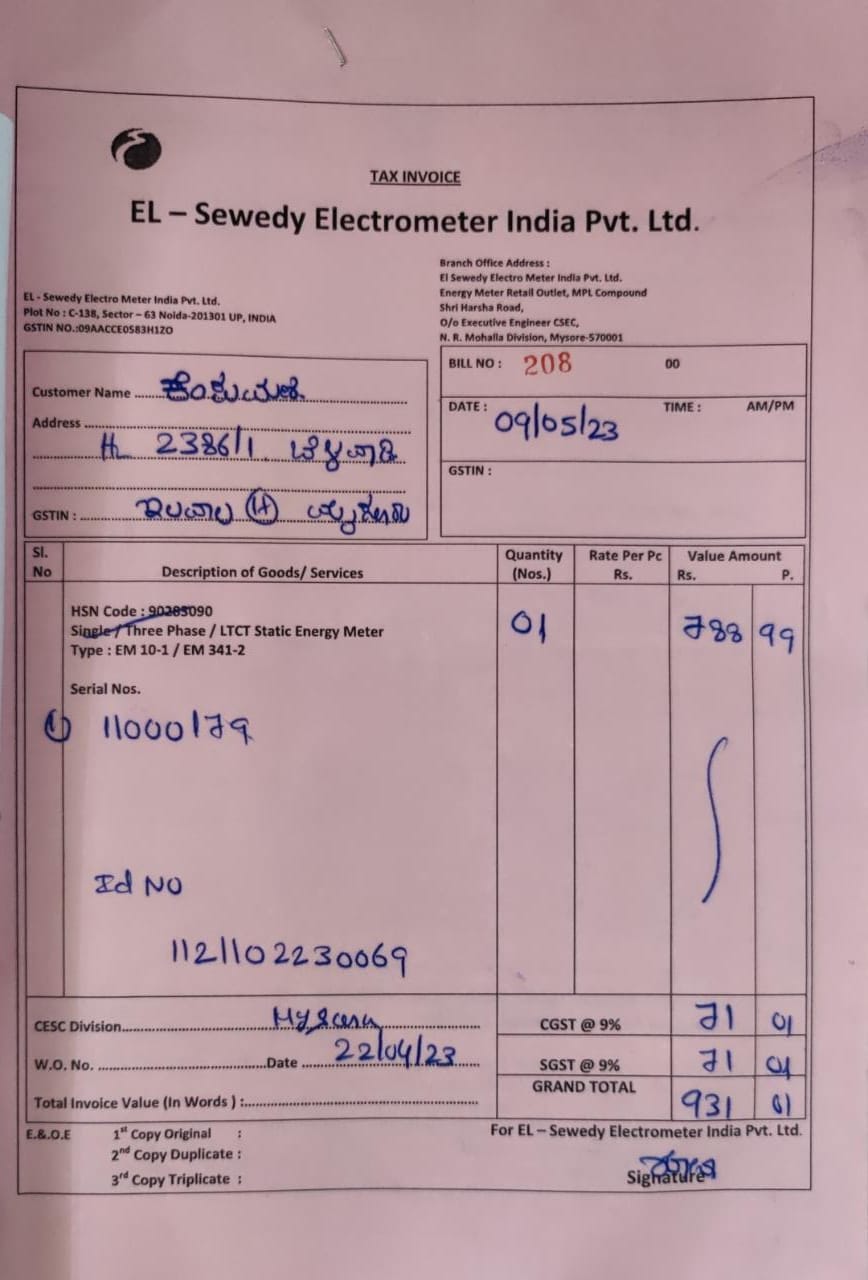 TAX INVOICE
EL – Sewedy Electrometer India Pvt. Ltd.
EL - Sewedy Electro Meter India Pvt. Ltd.
Plot No : C-138, Sector – 63 Noida-201301 UP, INDIA
GSTIN NO.:09AACCE0583H1ZO
Branch Office Address :
El Sewedy Electro Meter India Pvt. Ltd.
Energy Meter Retail Outlet, MPL Compound
Shri Harsha Road,
O/o Executive Engineer CSEC,
N. R. Mohalla Division, Mysore-570001
Customer Name
Address
# 2386/1
GSTIN : (H)
BILL NO : 208 00
DATE : 09/05/23 TIME : AM/PM
GSTIN :
Sl. No Description of Goods/ Services Quantity (Nos.) Rate Per Pc Rs. Value Amount Rs. P.
HSN Code : 90283090 01 788 99
Single / Three Phase / LTCT Static Energy Meter
Type : EM 10-1 / EM 341-2
Serial Nos.
① 11000179
Id NO
1121102230069
CESC Division CGST @ 9% 71 01
W.O. No. Date 22/04/23 SGST @ 9% 71 01
GRAND TOTAL 931 01
Total Invoice Value (In Words ) :
E.&.O.E 1st Copy Original : For EL – Sewedy Electrometer India Pvt. Ltd.
2nd Copy Duplicate :
3rd Copy Triplicate : Signature